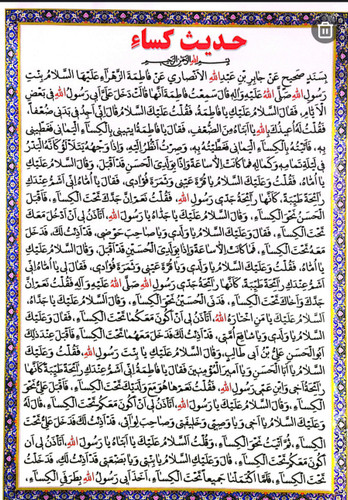 حديث كساء
بِسَنَدٍ صَحِيحٍ عَنْ جَابِرِ بْنِ عَبْدِ اللهِ الْأَنْصَارِي عَنْ فَاطِمَةَ الزَّهْرَاءِ عَلَيْهَا السَّلَامُ بِنْتِ
رَسُولِ اللهِ صَلَّى اللهُ عَلَيْهِ وَآلِهِ قَالَ سَمِعْتُ فَاطِمَةَ أَنَّهَا قَالَتْ دَخَلَ عَلَيَّ أَبِي رَسُولُ اللهِ فِي بَعْضِ
الْأَيَّامِ، فَقَالَ السَّلَامُ عَلَيْكِ يَا فَاطِمَةُ، فَقُلْتُ عَلَيْكَ السَّلَامُ قَالَ إِنِّي أَجِدُ فِي بَدَنِي ضَعْفًا،
فَقُلْتُ لَهُ أُعِيذُكَ بِاللهِ يَا أَبَتَاهُ مِنَ الضَّعْفِ، فَقَالَ يَا فَاطِمَةُ إِيتِينِي بِالْكِسَاءِ الْيَمَانِي فَغَطِّينِي
بِهِ، فَأَتَيْتُهُ بِالْكِسَاءِ الْيَمَانِي فَغَطَّيْتُهُ بِهِ، وَصِرْتُ أَنْظُرُ إِلَيْهِ، وَإِذَا وَجْهُهُ يَتَلَأْلَؤُ كَأَنَّهُ الْبَدْرُ
فِي لَيْلَةِ تَمَامِهِ وَكَمَالِهِ فَمَا كَانَتْ إِلَّا سَاعَةً وَإِذَا بِوَلَدِيَ الْحَسَنِ قَدْ أَقْبَلَ، وَقَالَ السَّلَامُ عَلَيْكِ
يَا أُمَّاهُ، فَقُلْتُ وَعَلَيْكَ السَّلَامُ يَا قُرَّةَ عَيْنِي وَثَمَرَةَ فُؤَادِي، فَقَالَ يَا أُمَّاهُ إِنِّي أَشَمُّ عِنْدَكِ
رَائِحَةً طَيِّبَةً، كَأَنَّهَا رَائِحَةُ جَدِّي رَسُولِ اللهِ، فَقُلْتُ نَعَمْ إِنَّ جَدَّكَ تَحْتَ الْكِسَاءِ، فَأَقْبَلَ
الْحَسَنُ نَحْوَ الْكِسَاءِ، وَقَالَ السَّلَامُ عَلَيْكَ يَا جَدَّاهُ يَا رَسُولَ اللهِ، أَتَأْذَنُ لِي أَنْ أَدْخُلَ مَعَكَ
تَحْتَ الْكِسَاءِ، فَقَالَ وَعَلَيْكَ السَّلَامُ يَا وَلَدِي وَيَا صَاحِبَ حَوْضِي، قَدْ أَذِنْتُ لَكَ، فَدَخَلَ
مَعَهُ تَحْتَ الْكِسَاءِ، فَمَا كَانَتْ إِلَّا سَاعَةً وَإِذَا بِوَلَدِيَ الْحُسَيْنِ قَدْ أَقْبَلَ، وَقَالَ السَّلَامُ عَلَيْكِ
يَا أُمَّاهُ، فَقُلْتُ وَعَلَيْكَ السَّلَامُ يَا وَلَدِي وَيَا قُرَّةَ عَيْنِي وَثَمَرَةَ فُؤَادِي، فَقَالَ لِي يَا أُمَّاهُ إِنِّي
أَشَمُّ عِنْدَكِ رَائِحَةً طَيِّبَةً، كَأَنَّهَا رَائِحَةُ جَدِّي رَسُولِ اللهِ صَلَّى اللهُ عَلَيْهِ وَآلِهِ فَقُلْتُ نَعَمْ إِنَّ
جَدَّكَ وَأَخَاكَ تَحْتَ الْكِسَاءِ، فَدَنَى الْحُسَيْنُ نَحْوَ الْكِسَاءِ، وَقَالَ السَّلَامُ عَلَيْكَ يَا جَدَّاهُ،
السَّلَامُ عَلَيْكَ يَا مَنِ اخْتَارَهُ اللهُ، أَتَأْذَنُ لِي أَنْ أَكُونَ مَعَكُمَا تَحْتَ الْكِسَاءِ، فَقَالَ وَعَلَيْكَ
السَّلَامُ يَا وَلَدِي وَيَا شَافِعَ أُمَّتِي، قَدْ أَذِنْتُ لَكَ فَدَخَلَ مَعَهُمَا تَحْتَ الْكِسَاءِ، فَأَقْبَلَ عِنْدَ ذَلِكَ
أَبُو الْحَسَنِ عَلِيُّ بْنُ أَبِي طَالِبٍ، وَقَالَ السَّلَامُ عَلَيْكِ يَا بِنْتَ رَسُولِ اللهِ، فَقُلْتُ وَعَلَيْكَ
السَّلَامُ يَا أَبَا الْحَسَنِ وَيَا أَمِيرَ الْمُؤْمِنِينَ فَقَالَ يَا فَاطِمَةُ إِنِّي أَشَمُّ عِنْدَكِ رَائِحَةً طَيِّبَةً كَأَنَّهَا
رَائِحَةُ أَخِي وَابْنِ عَمِّي رَسُولِ اللهِ، فَقُلْتُ نَعَمْ هَا هُوَ مَعَ وَلَدَيْكَ تَحْتَ الْكِسَاءِ، فَأَقْبَلَ عَلِيٌّ نَحْوَ
الْكِسَاءِ، وَقَالَ السَّلَامُ عَلَيْكَ يَا رَسُولَ اللهِ، أَتَأْذَنُ لِي أَنْ أَكُونَ مَعَكُمْ تَحْتَ الْكِسَاءِ، قَالَ لَهُ
وَعَلَيْكَ السَّلَامُ يَا أَخِي وَيَا وَصِيِّي وَخَلِيفَتِي وَصَاحِبَ لِوَائِي، قَدْ أَذِنْتُ لَكَ، فَدَخَلَ عَلِيٌّ تَحْتَ
الْكِسَاءِ، ثُمَّ أَتَيْتُ نَحْوَ الْكِسَاءِ، وَقُلْتُ السَّلَامُ عَلَيْكَ يَا أَبَتَاهُ يَا رَسُولَ اللهِ أَتَأْذَنُ لِي أَنْ
أَكُونَ مَعَكُمْ تَحْتَ الْكِسَاءِ، قَالَ وَعَلَيْكِ السَّلَامُ يَا بِنْتِي وَيَا بَضْعَتِي قَدْ أَذِنْتُ لَكِ، فَدَخَلْتُ
تَحْتَ الْكِسَاءِ، فَلَمَّا اكْتَمَلْنَا جَمِيعًا تَحْتَ الْكِسَاءِ، أَخَذَ أَبِي رَسُولُ اللهِ بِطَرَفَيِ الْكِسَاءِ،